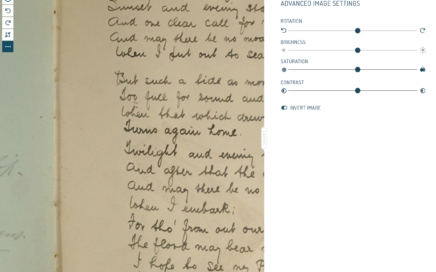 Sunset and evening sta
And one clear call for
And may there be no mo
When I put out to sea
But such a tide as mo
Too full for sound and
When that which drew
Turns again home.
Twilight and evening
And after that the
And may there be no
When I embark;
For tho' from out our
The flood may bear
I hope to see my P
ADVANCED IMAGE SETTINGS
ROTATION
BRIGHTNESS
SATURATION
CONTRAST
INVERT IMAGE